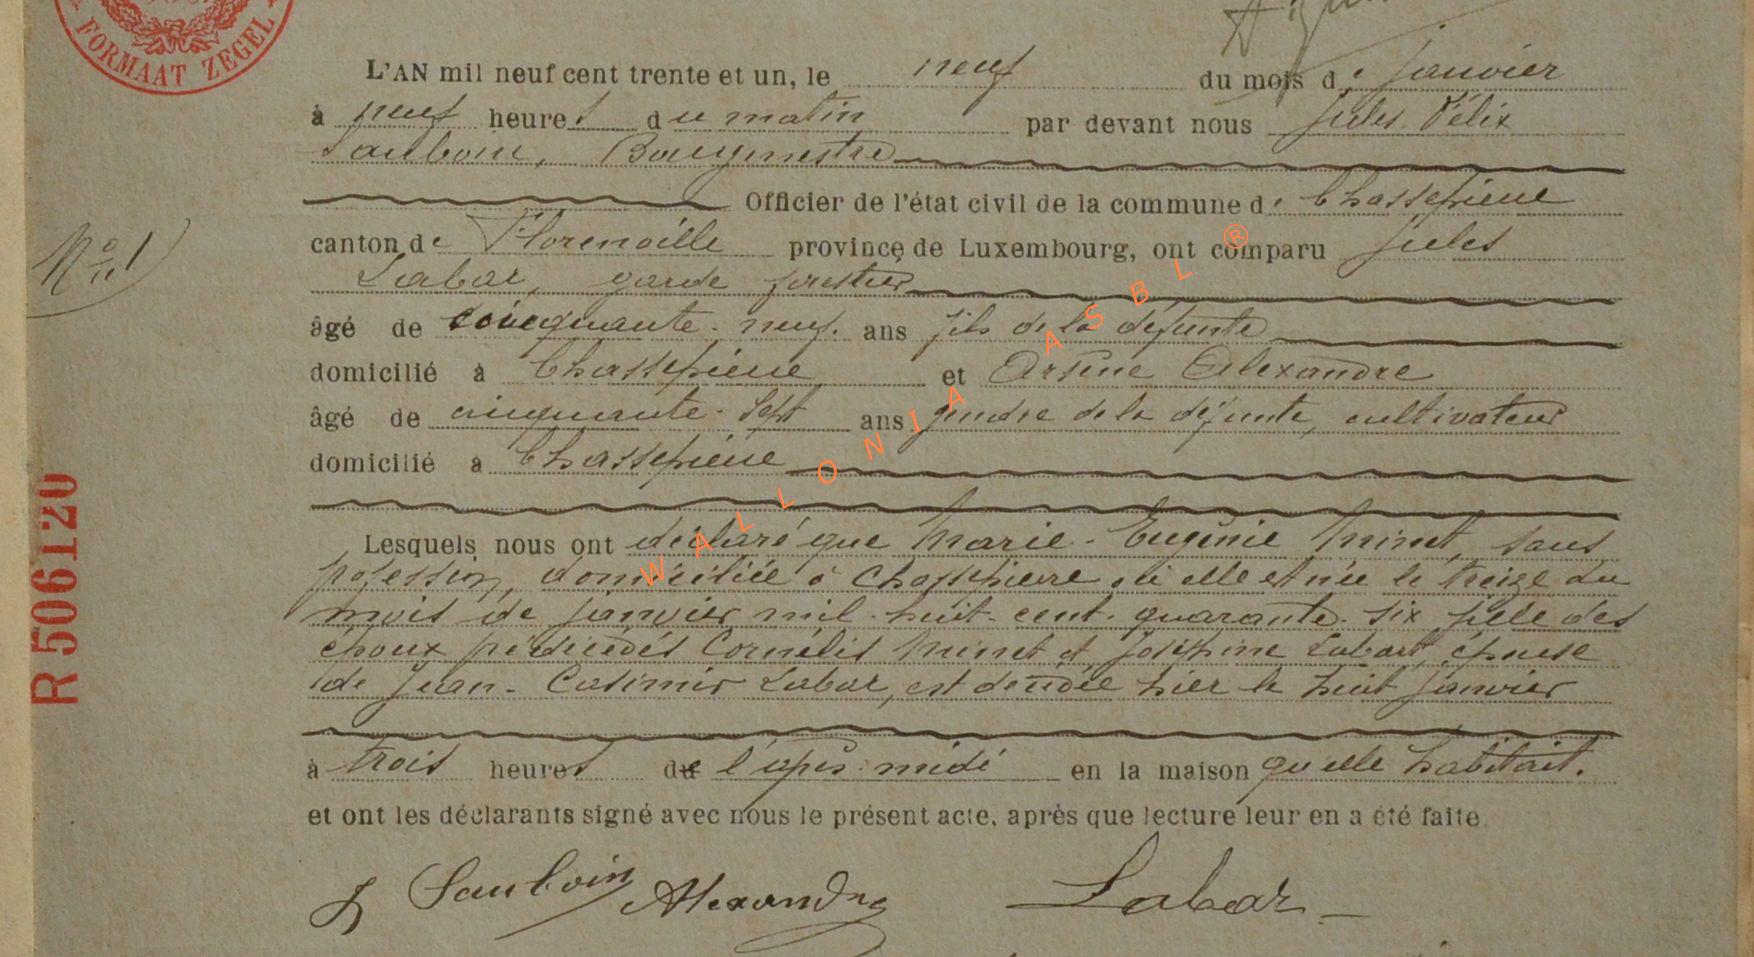 FORMAAT ZEGEL
L'AN mil neuf cent trente et un, le neuf du mois de janvier
à neuf heures du matin par devant nous Jules Félix
Sauboin, Bourgmestre
Officier de l'état civil de la commune de Chassepierre
Nº 1
canton de Florenville province de Luxembourg, ont comparu Jules
Labar, garde forestier
âgé de cinquante-neuf ans fils de la défunte
domicilié à Chassepierre et Arsène Alexandre
âgé de cinquante-sept ans gendre de la défunte, cultivateur
domicilié à Chassepierre
Lesquels nous ont déclaré que Marie-Eugénie Minet, sans
profession, domiciliée à Chassepierre où elle est née le treize du
mois de janvier mil-huit-cent-quarante-six fille des
époux prédécédés Cornélis Minet et Joséphine Labart, épouse
de Jean-Casimir Labar, est décédée hier le huit janvier
à trois heures de l'après-midi en la maison qu'elle habitait.
et ont les déclarants signé avec nous le présent acte, après que lecture leur en a été faite
J Sauboin Alexandre Labar
R 506120
WALLONIA ASBL ®